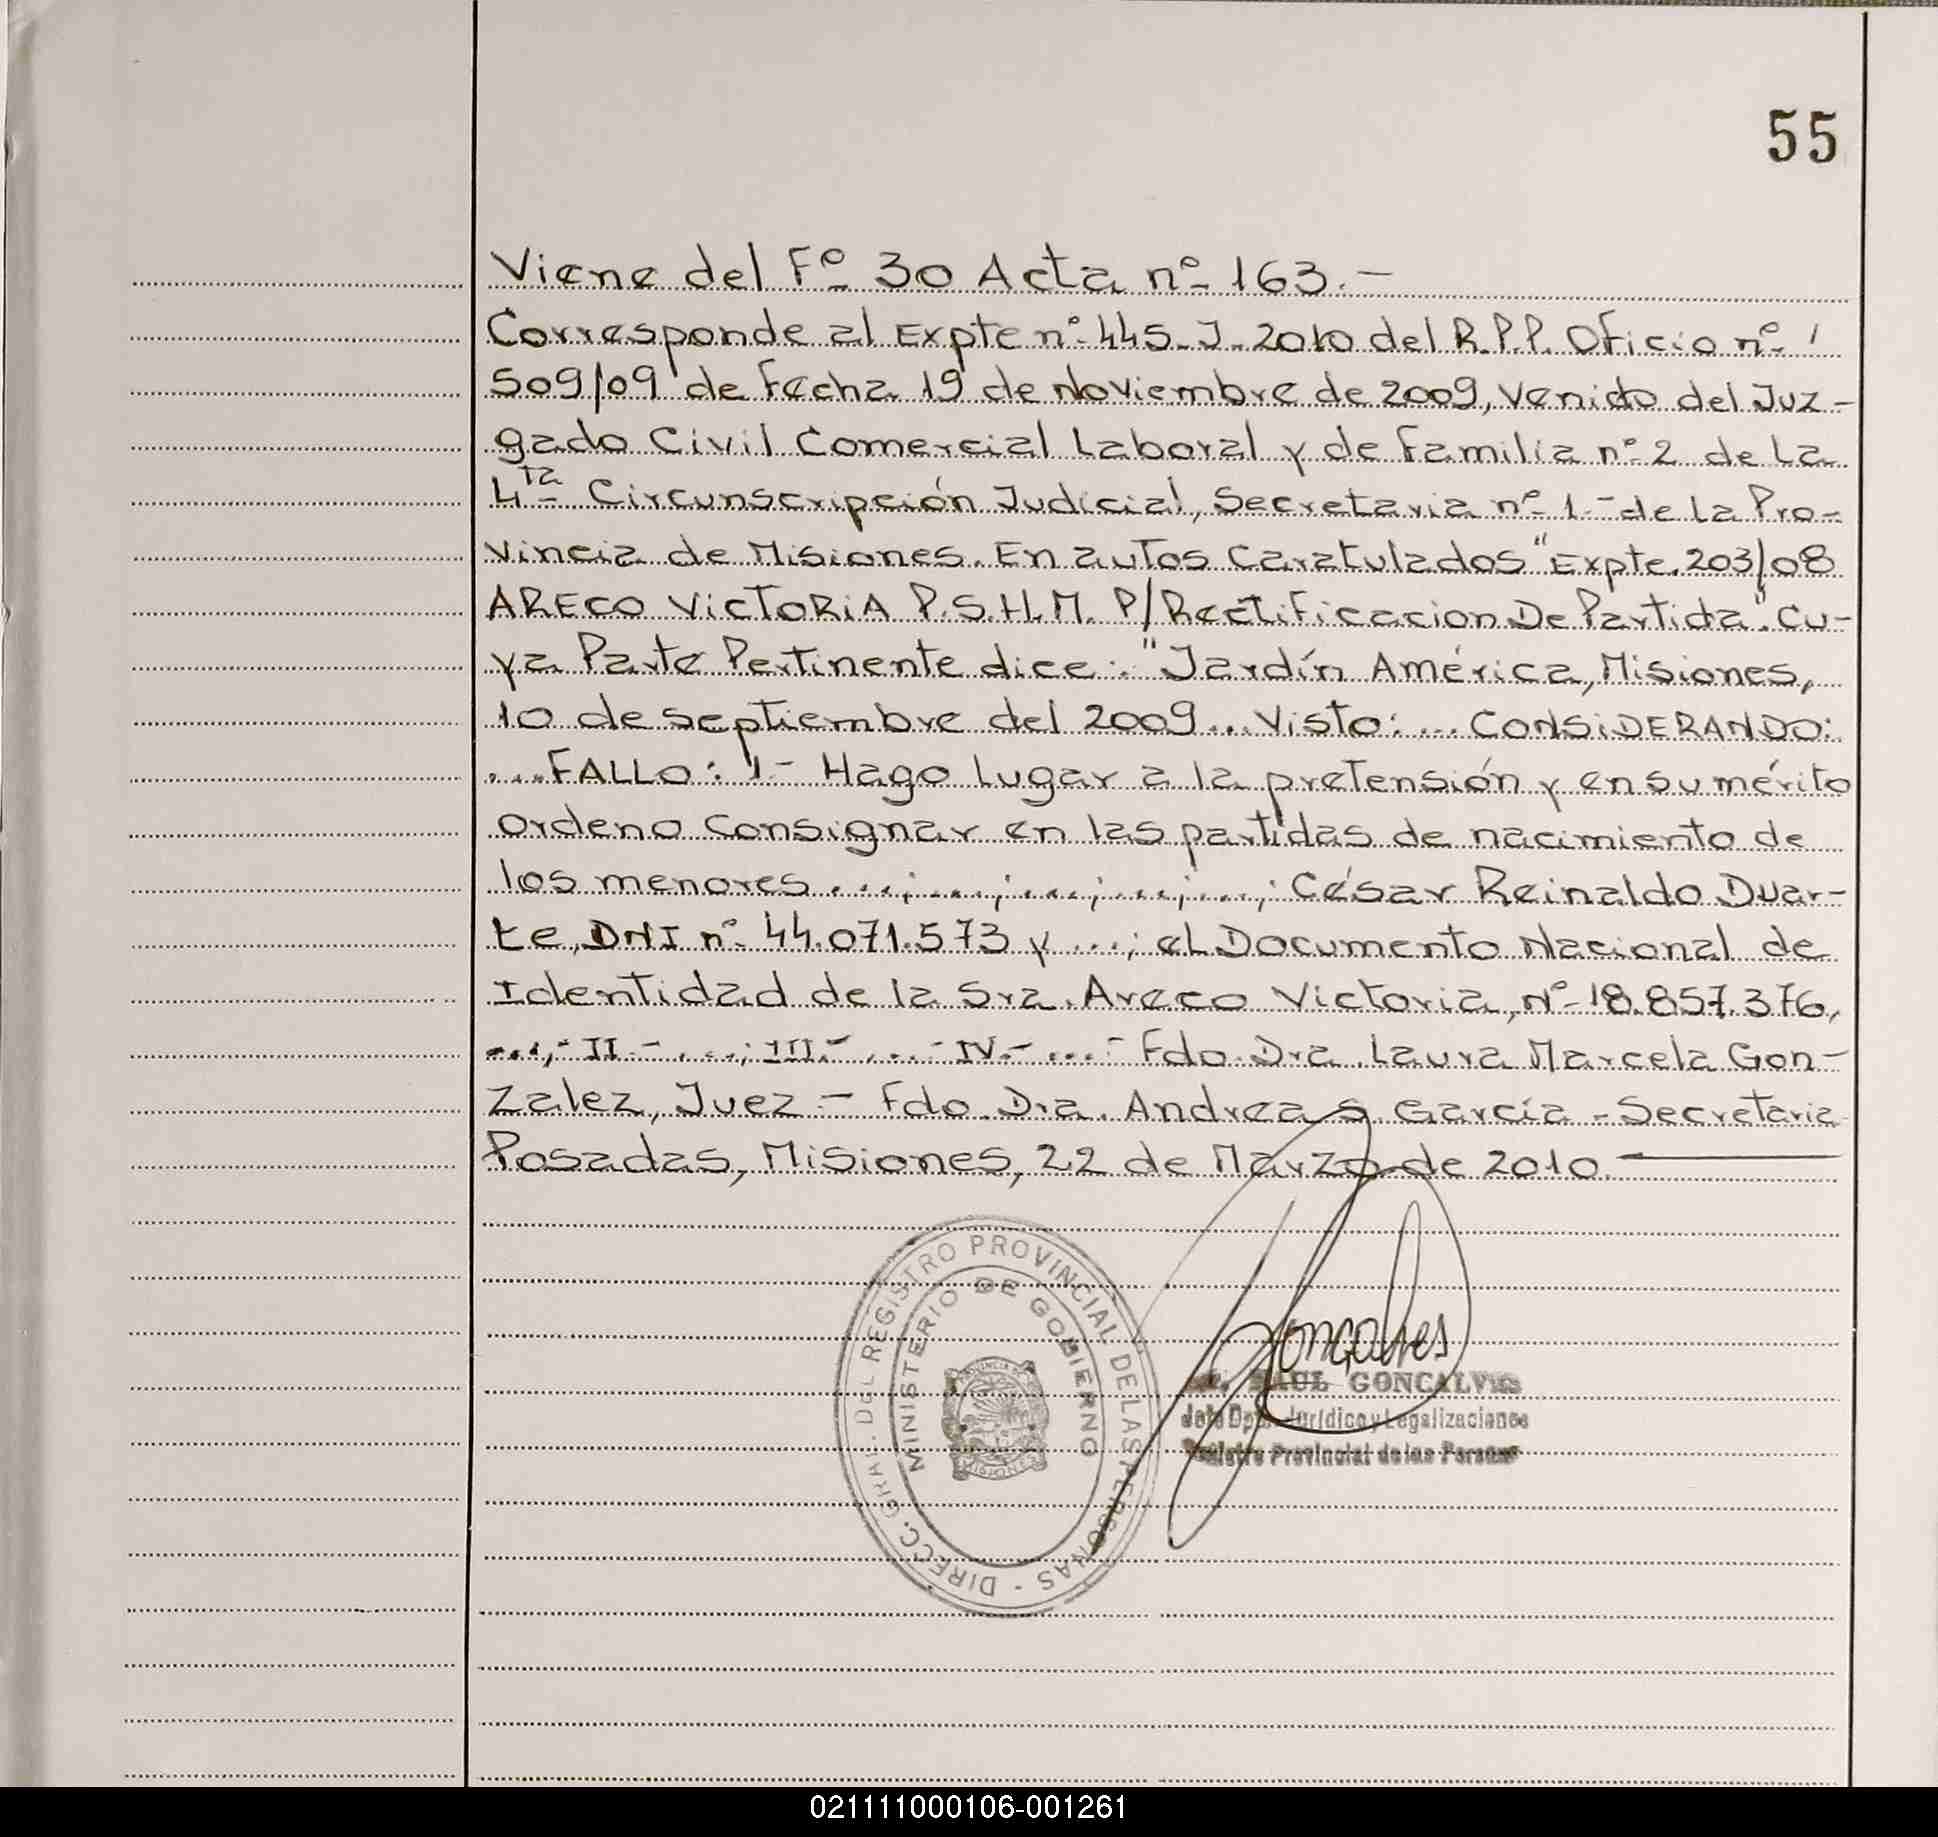 55
Viene del Fº 30 Acta nº 163.-
Corresponde al Expte nº 445-J-2010 del R.P.P. Oficio nº 1
509/09 de Fecha 19 de Noviembre de 2009, Venido del Juz-
gado Civil Comercial Laboral y de Familia nº 2 de La
4ta Circunscripción Judicial, Secretaria nº 1.- de la Pro-
vincia de Misiones. En autos Caratulados "Expte. 203/08
ARECO VICTORIA P.S.H.M. P/ Rectificacion De Partida". Cu-
ya Parte Pertinente dice: "Jardín América, Misiones,
10 de septiembre del 2009... Visto: ... CONSIDERANDO:
...FALLO: 1.- Hago lugar a la pretensión y en su mérito
ordeno consignar en las partidas de nacimiento de
los menores ...;...;...;...;...; César Reinaldo Duar-
te, DNI nº 44.071.573 y ...; el Documento Nacional de
Identidad de la Sra. Areco Victoria, Nº 18.857.376,
...,- II.- ,...; III.- ,...- IV.- ...- Fdo. Dra. Laura Marcela Gon-
zalez, Juez.- Fdo. Dra. Andrea S. García - Secretaria
Posadas, Misiones, 22 de Marzo de 2010.
DIRECC. GRAL. DEL REGISTRO PROVINCIAL DE LAS PERSONAS -
MINISTERIO DE GOBIERNO
PROVINCIA
MISIONES
Goncalves
RAUL GONCALVES
Jefe Dpto. Jurídico y Legalizaciones
Registro Provincial de las Personas
021111000106-001261